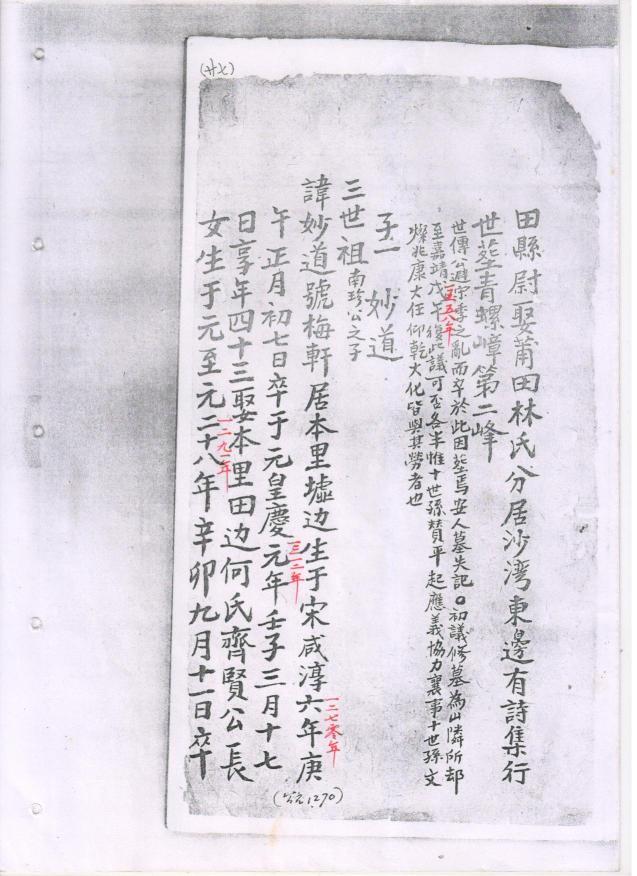 (廿七)
田縣尉娶莆田林氏分居沙湾東邊有詩集行
世塟青螺嶂第二峰
世傳公避宋季之亂而卒於此因塟焉安人墓失記〇初議修墓為山隣所却
至嘉靖戊午復此議可否各半惟十世孫賛平起應義協力襄事十世孫文
一五五八年
燦兆康大任仰乾大化皆與其勞者也
子一 妙道
三世祖南珍公之子
諱妙道號梅軒居本里墟边生于宋咸淳六年庚
一二七零年
(公元1270)
午正月初七日卒于元皇慶元年壬子三月十七
一三一二年
日享年四十三娶本里田边何氏齊賢公長
女生于元至元二十八年辛卯九月十一日卒
一二九一年